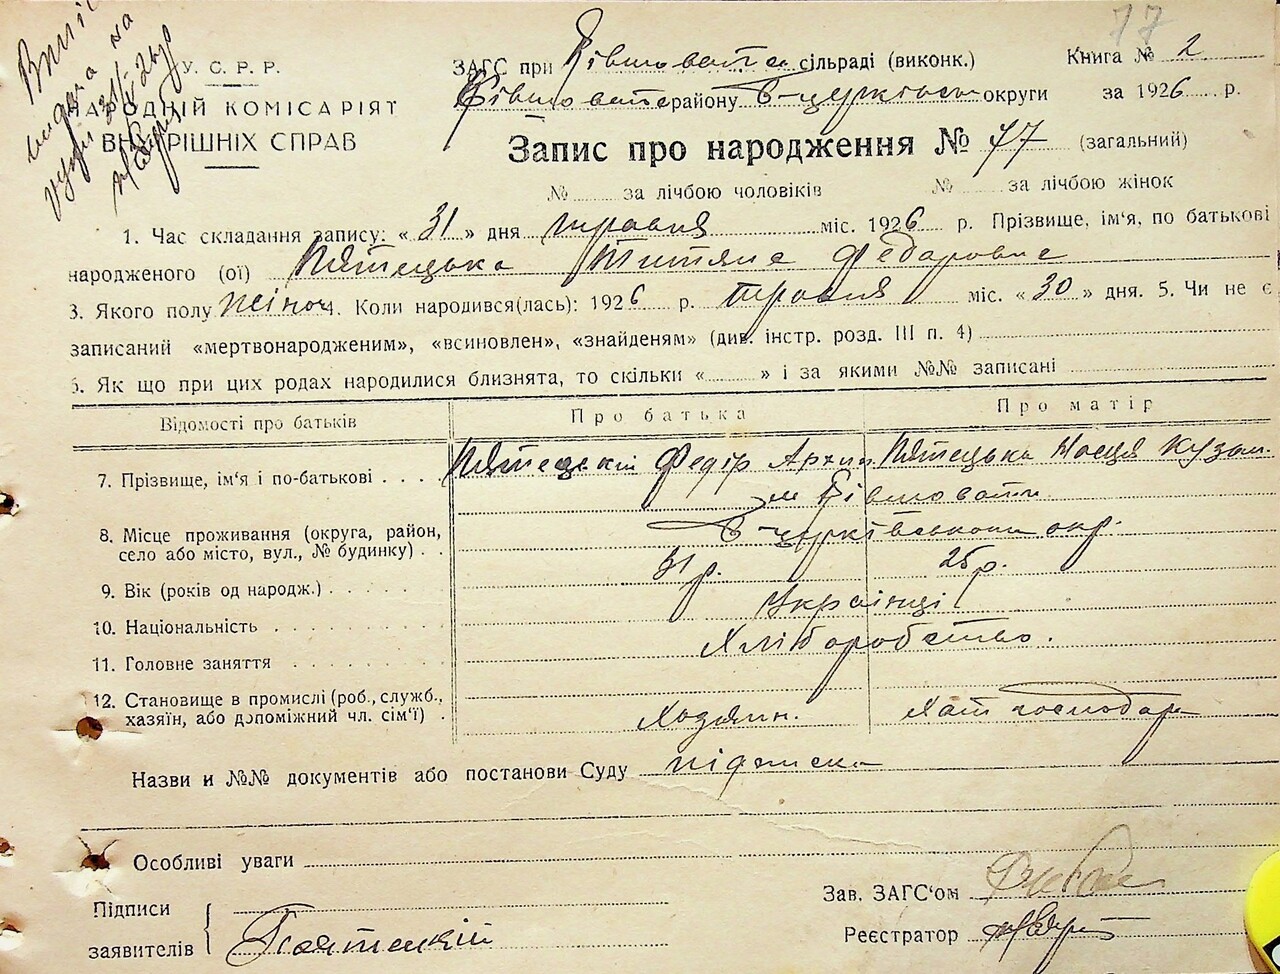 77
У. С. Р. Р.
НАРОДНІЙ КОМІСАРІЯТ
ВНУТРІШНІХ СПРАВ
ЗАГС при сільраді (виконк.) Книга № 2
району Б-церківської округи за 1926 р.
Запис про народження № 77 (загальний)
№ за лічбою чоловіків № за лічбою жінок
1. Час складання запису: « 31 » дня травня міс. 1926 р. Прізвище, ім‘я, по батькові
народженого (ої) Пятецька Титяна Федаровна
3. Якого полу жіноч 4. Коли народився(лась): 1926 р. травня міс. « 30 » дня. 5. Чи не є
записаний «мертвонародженим», «всиновлен», «знайденям» (див. інстр. розд. III п. 4)
6. Як що при цих родах народилися близнята, то скільки « » і за якими №№ записані
Відомості про батьків Про батька Про матір
7. Прізвище, ім‘я і по-батькові Пятецький Федір Архип Пятецька Настя Кузьм.
8. Місце проживання (округа, район,
село або місто, вул., № будинку) Б-церківськоги окр.
9. Вік (років од народж.) 31 р. 25 р.
10. Національність Українці
11. Головне заняття Хліборобство.
12. Становище в промислі (роб., служб.,
хазяїн, або допоміжний чл. сім‘ї) Хозяин. Хат господар
Назви и №№ документів або постанови Суду підписка
Особливі уваги
Зав. ЗАГС‘ом
Підписи
заявителів Пятецкій
Реєстратор